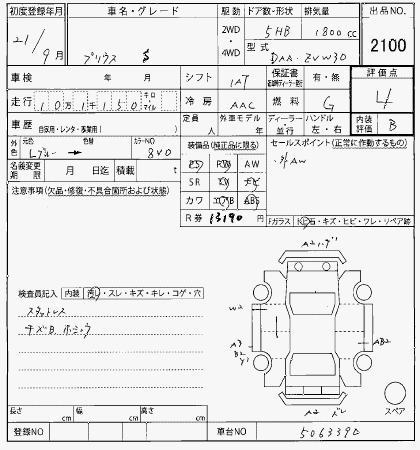 初度登録年月 車名・グレード 駆動 ドア数・形状 排気量 出品NO.
21/9月 プリウス S 2WD・4WD 5HB 1800cc 2100
型式 DAA-ZVW30
車検 年 月 シフト IAT 保証書 有・無 評価点
走行 10万1千150 キロ マイル 冷房 AAC 燃料 G 4
車歴 自家用・レンタ・事業用( ) 定員 人 外車モデル 年 ディーラー・並行 ハンドル 左・右 内装評価 B
外色 元色 Lブルー 色替 カラーNO 8V0 装備品(純正品に限る) セールスポイント(正常に作動するもの)
名義変更期限 月 日迄 積載 t PS PW AW ・社外AW
注意事項(欠品・修復・不具合箇所および状態) SR
カワ エアB ABS
R券 13190円 Fガラス 飛石・キズ・ヒビ・ワレ・リペア跡
検査員記入 内装 汚れ・スレ・キズ・キレ・コゲ・穴
スタットレス
キズB
W2
A3
B2
Y1
AB2
A2
スペア
長さ cm 幅 cm 高さ cm
登録NO 車台NO 5063390